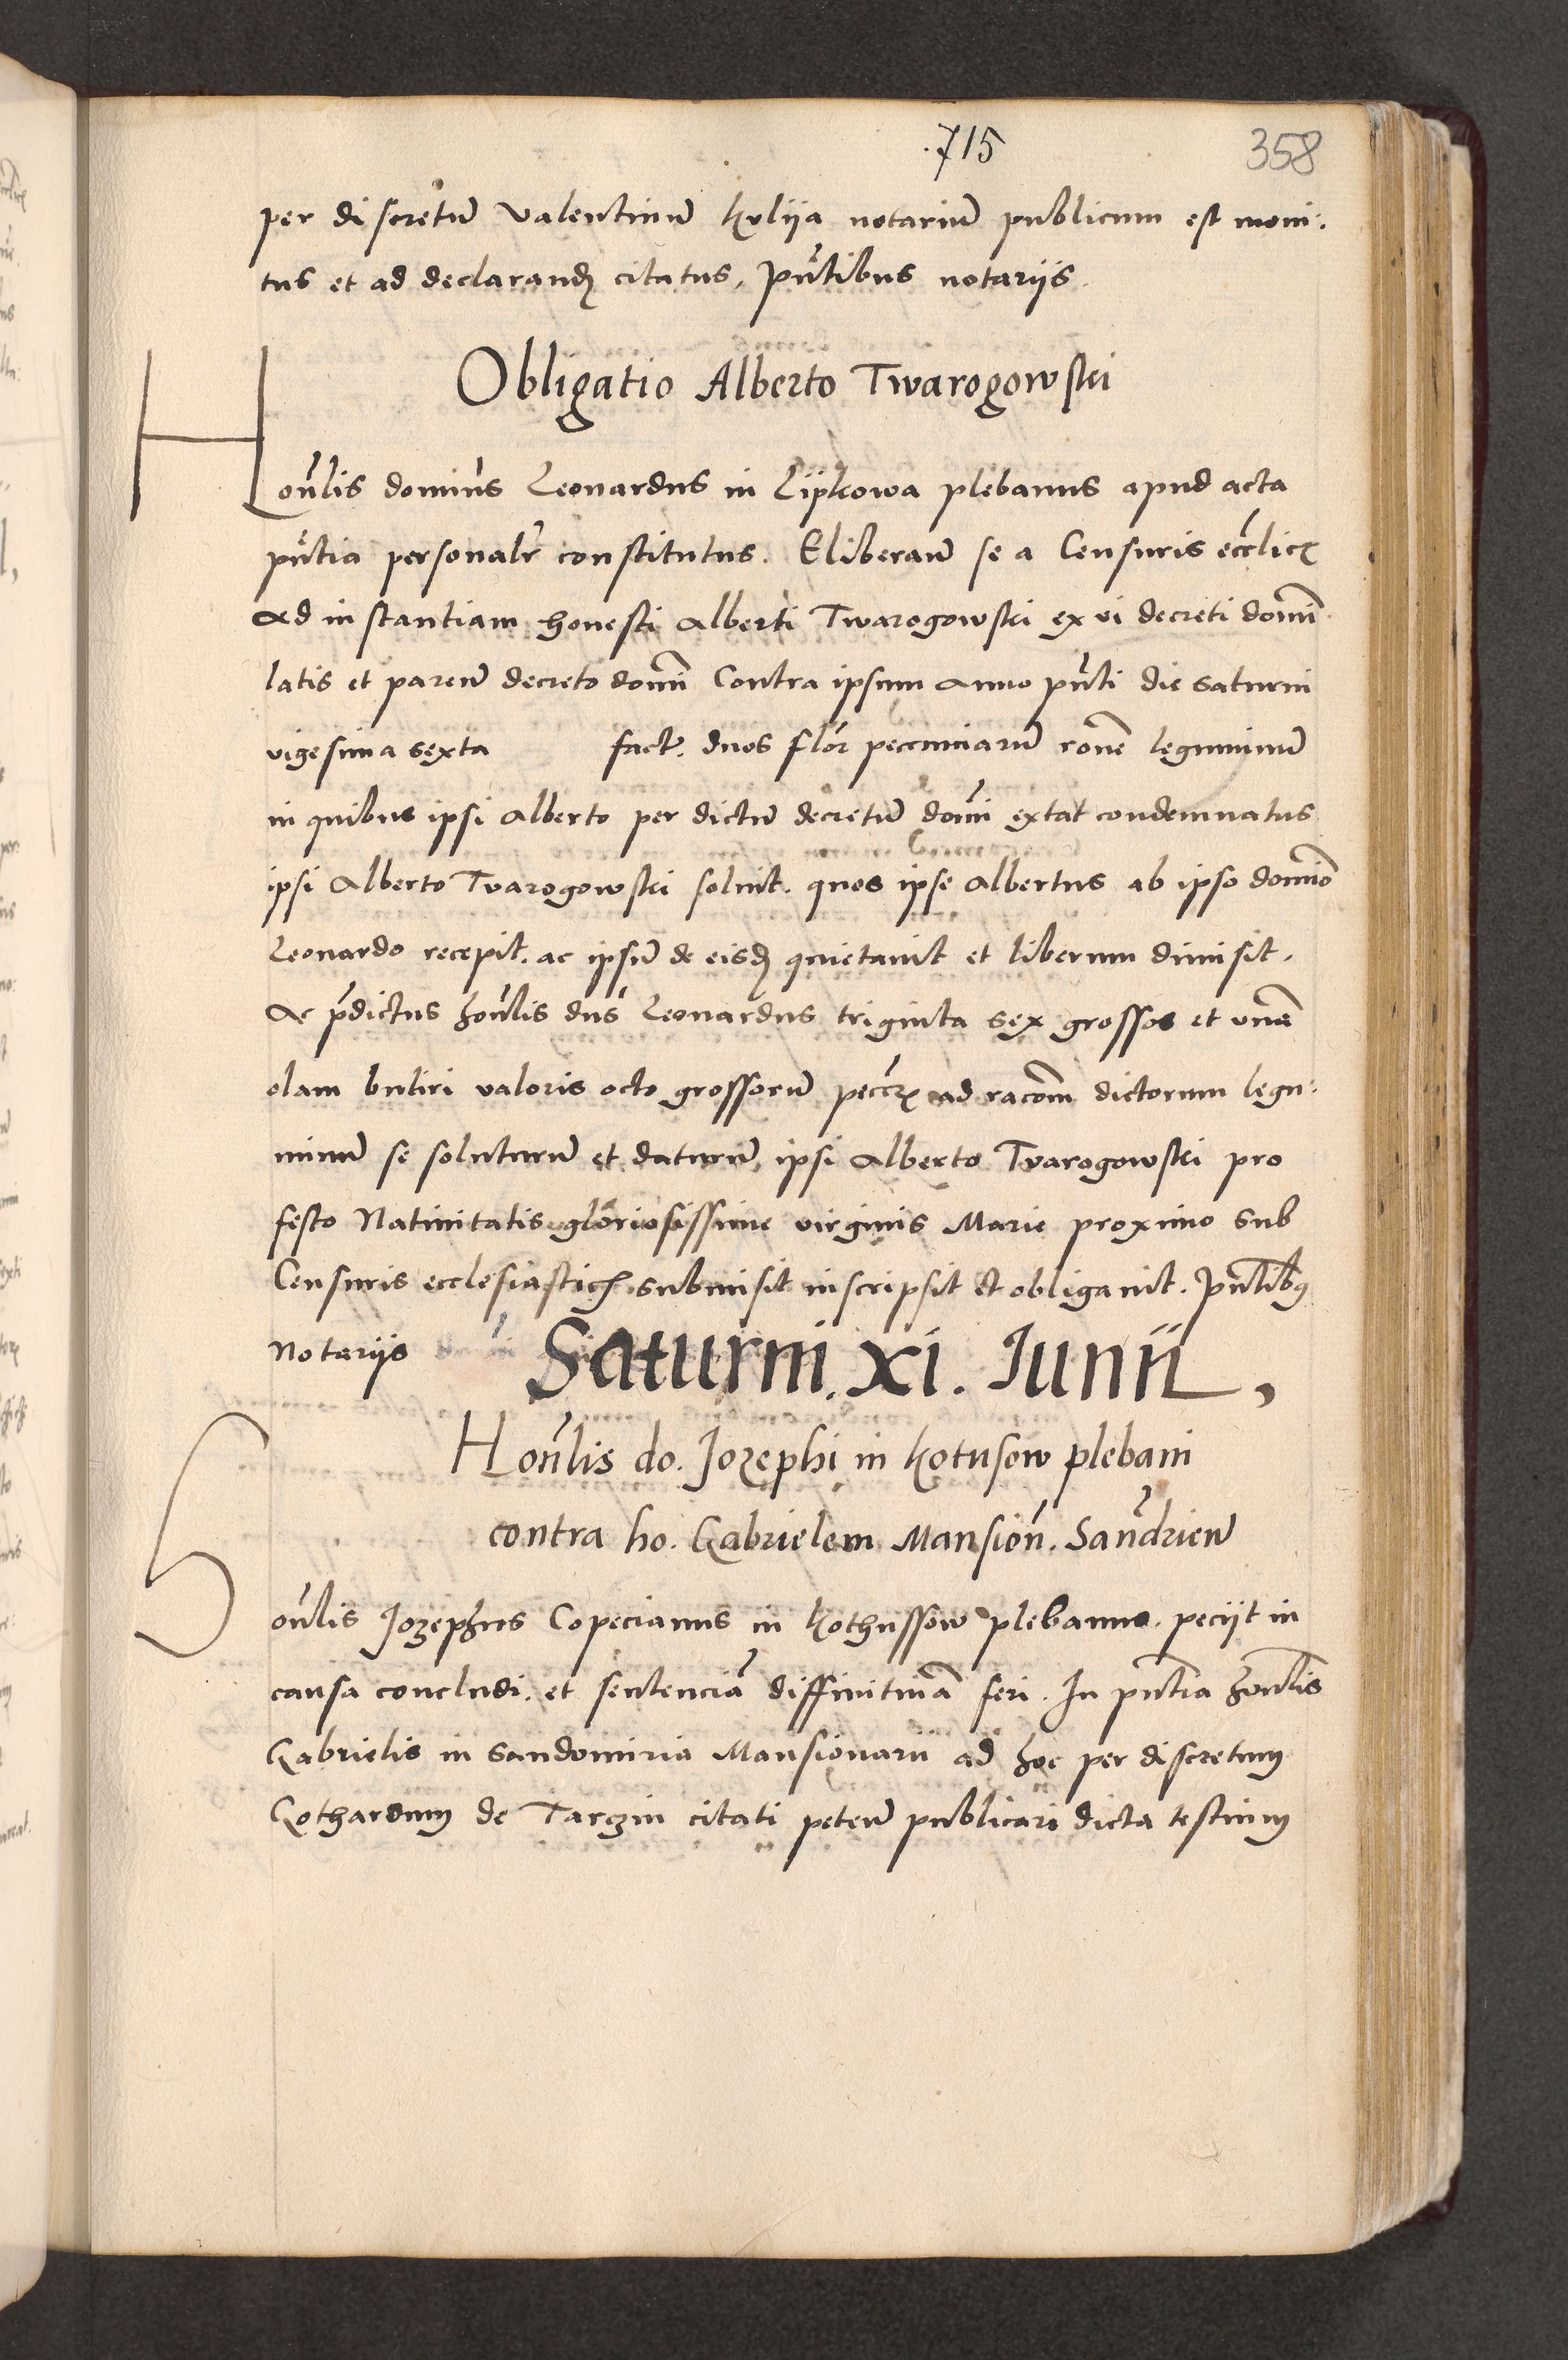 .715 358
per discretũ Valentinũ Kvlija notariũ publicum est moni:
tus et ad declarand̃ citatus, pñtibus notarijs
Obligatio Alberto Twarogowski
Hoñlis domin9 Leonardus in Lipkowa plebanus apud acta
pñtia personalr̃ constitutus. Eliberan̄ se a Censuris eccl̃ic
ad instantiam honesti Alberti Twarogowski ex vi decreti domĩ
latis et paren̄ decreto domĩ Contra ipsum Anno pñti die saturni
vigesima sexta fact. duos flor̃ pecuniarũ rõne leguminũ
in quibus ipsi Alberto per dictũ decretũ domĩ extat condemnatus
ipsi Alberto Tvarogowski soluit. quos ipse Albertus ab ipso domino
Leonardo recepit. ac ipsũ de eisd̃ quietauit et liberum dimisit.
Ac p̃dictus hoñlis dñs Leonardus triginta sex grossos et vnã
olam butiri valoris octo grossorũ pecc̃ ad racõm dictorum legu:
minũ se soluturũ et daturũ ipsi Alberto Tvarogowski pro
festo Natiuitatis gloriosissime virginis Marie proximo sub
Censuris ecclesiastic̃ submisit inscripsit et obligauit. pñtib9
Notarijs Saturni. xi. Iunii,
Hoñlis do. Jozephi in Kotusow plebani
contra ho. Gabrielem Mansioñ. Sañdrien̄
Hoñlis Jozephus Copecianus in Kothussow plebanus. peciit in
causa concludi. et sentenciã diffinitiuã feri. In pñtia hoñlis
Gabrielis in Sandomiria Mansionarii ad hoc per discretum
Gothardum de Targin citati peten̄ publicari dicta testium